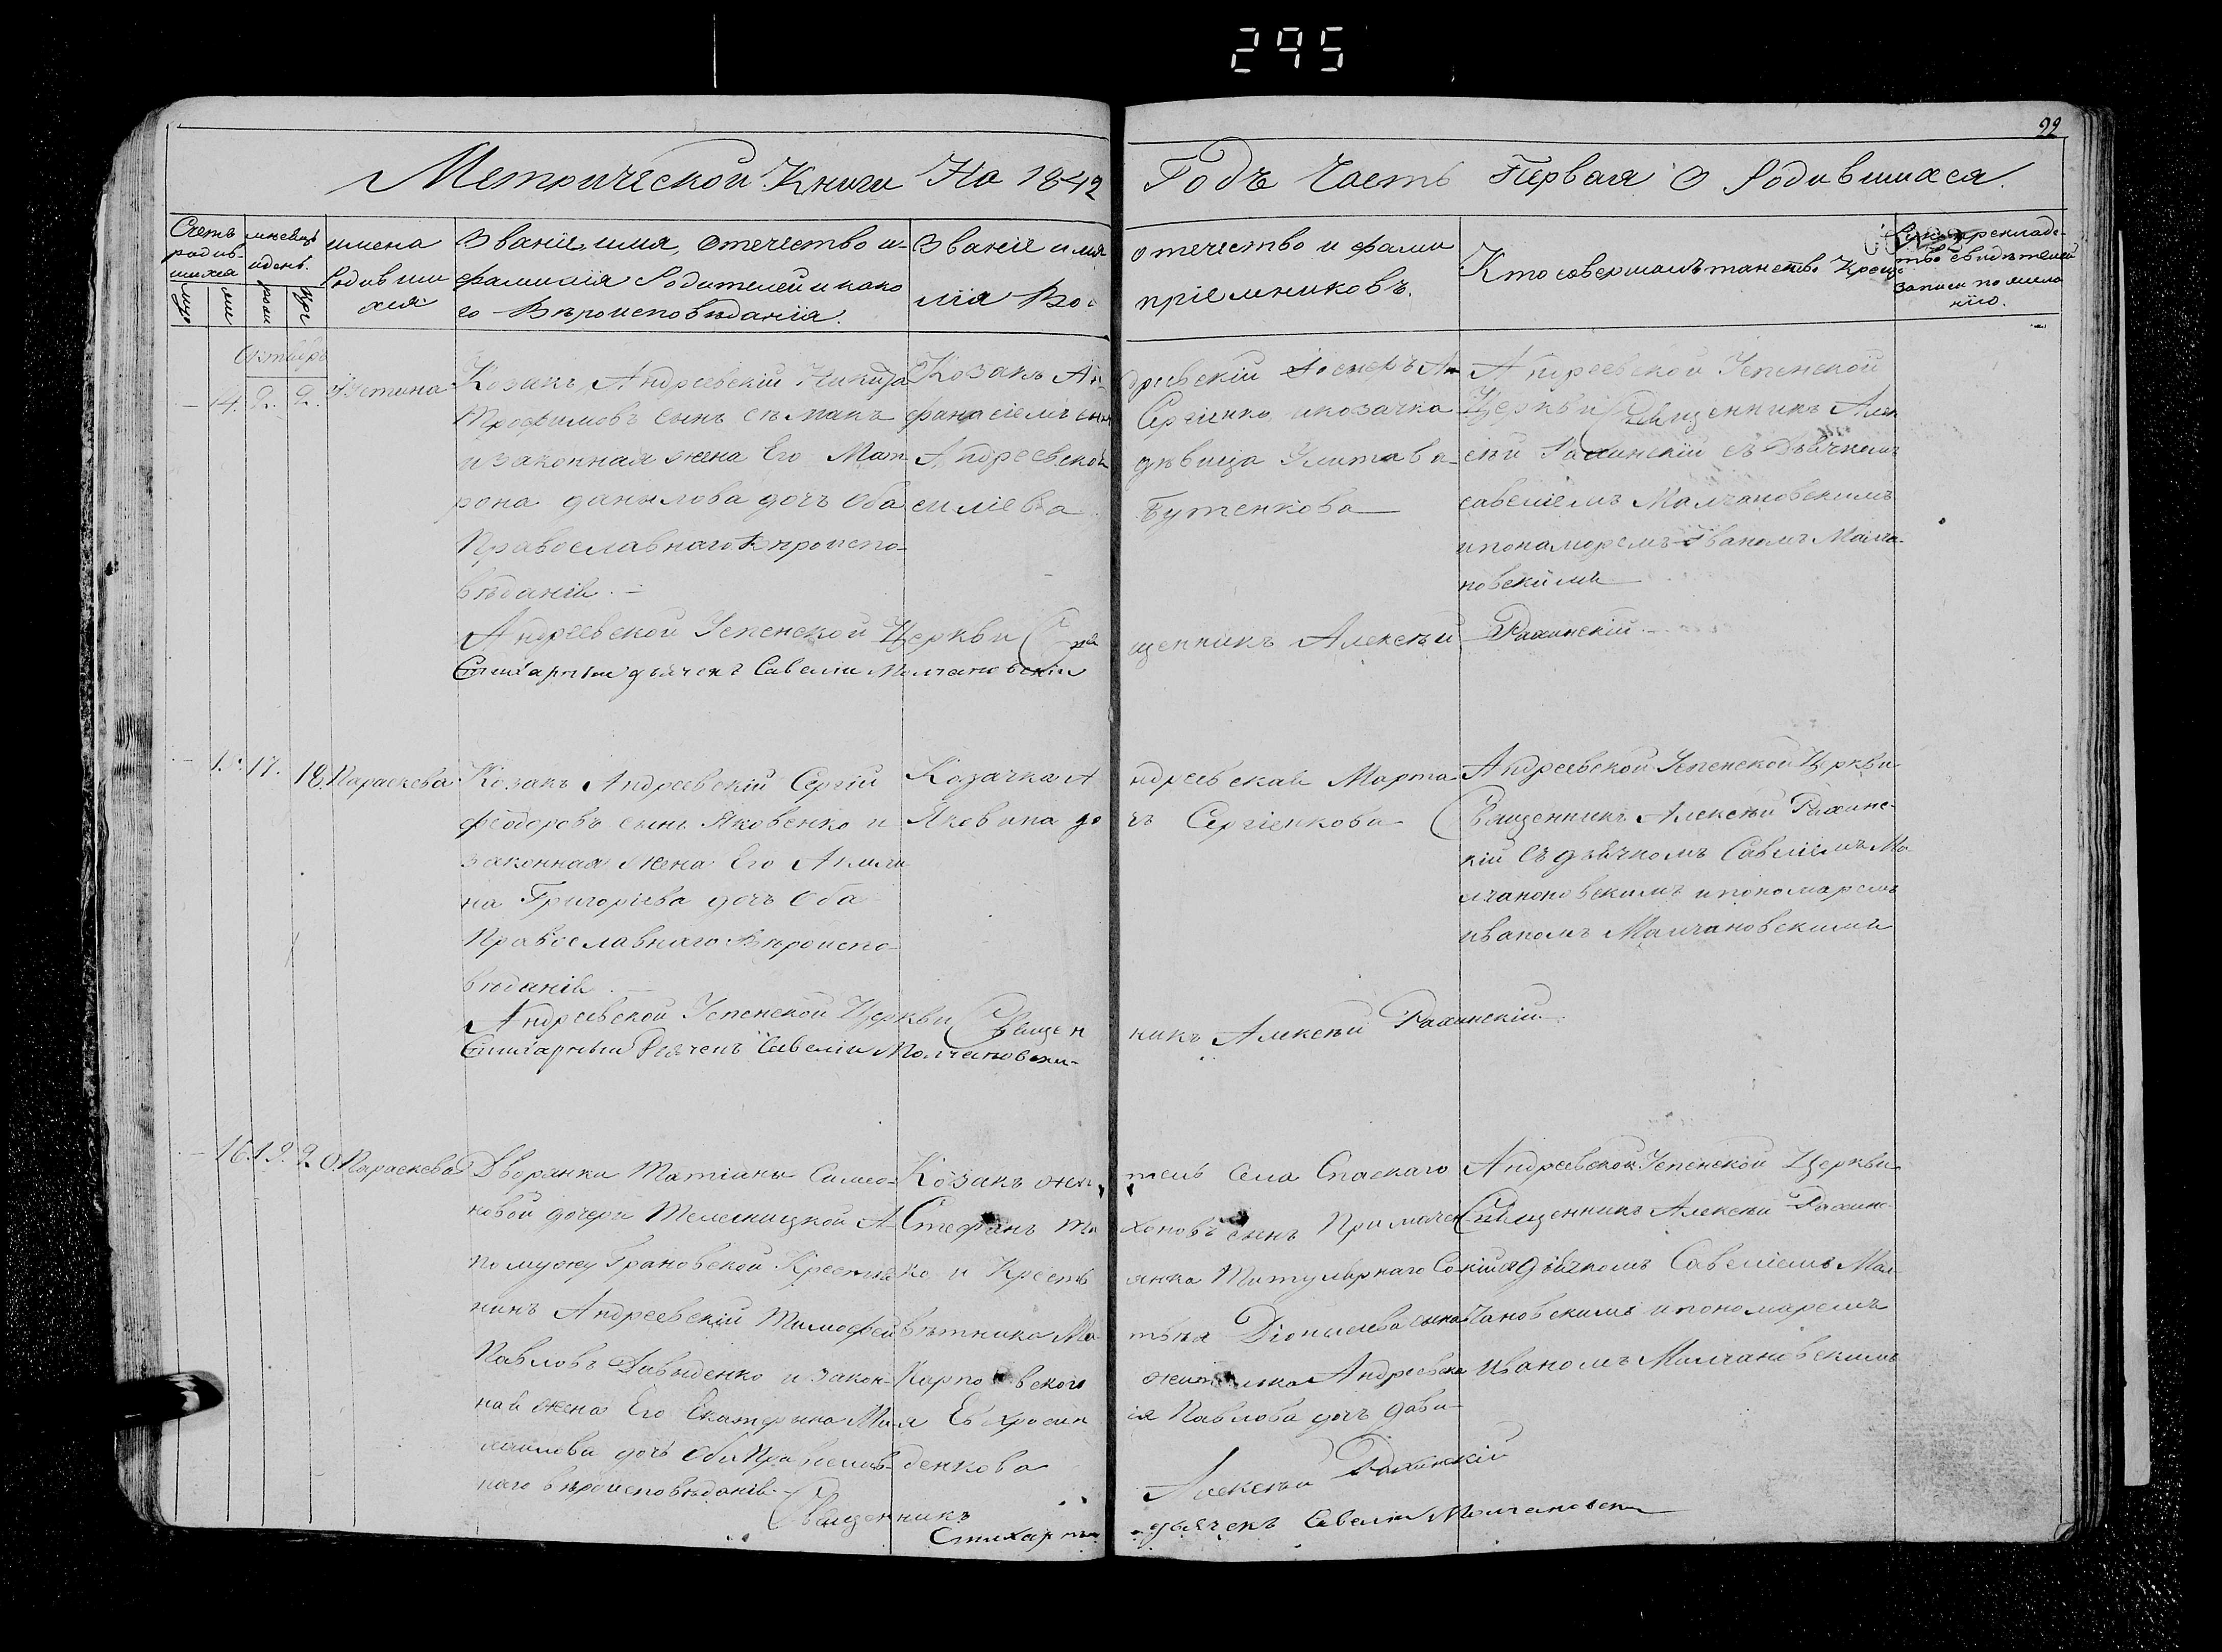 295
22
Метрической Книги На 1842 Годъ Часть Первая О Родившихся.
Счетъ родив-шихся
мѣсяцъ и день.
имена Родивши хся.
Званіе, имя, отечество и
фамилія Родителей и како
го Вѣроисповѣданія.
Званіе имя отечество и фами
лія Во пріемниковъ.
Кто совершалъ таинство Крещ
рукоприкладс-
тво свидѣтелей
записи по жела
нію.
Октябрь
14. 2. 2. Устина
Козакъ Андреевскій Никита
Трофимовъ сынъ
и законная жена Его Мат
рона данылова дочъ Оба
Православнаго Вѣроиспо-
вѣданія.
Козакъ Андреевскій
фанасіемъ сынъ Сергіенко, и козачка
Андреевская дѣвица Улита Ва
силіева Бутенкова
Андреевской Успенской
Церкви Священникъ Алек
сѣй Рахинскій съ Дьячкомъ
савеліемъ Малчановскимъ
и понаморемъ Иваномъ Малча-
новскимъ
Андреевской Успенской Церкви Священникъ Алексѣй Рахинскій
Стихарный дьячекъ Савелій Молчановскій
15. 17. 18. Параскева
Козакъ Андреевскій Сергій
Феодоровъ сынъ Яковенко и
законная жена Его Акили
на Григоріева дочъ Оба
Православнаго Вѣроиспо
вѣданія.
Казачка Андреевская Марта
Яковина дочъ Сергіенкова
Андреевской Успенской Церкви
Священникъ Алексѣй Рахинс-
кій Съ дьячкомъ Савеліемъ Мо
лчановскимъ и пономаремъ
иваномъ Малчановскимъ
Андреевской Успенской Церкви Священникъ Алексѣй Рахинскій
Стихарный Дьячекъ Савелій Молчановскій
16. 19. 20. Параскева
Дворянки Татіаны Симео-
новой дочери Телесницкой А
по мужу Грановской Крестья
нинъ Андреевскій Тимофей
Павловъ Давыденко и закон-
ная жена Его Екатерына Ми
хайлова дочъ Оба Православ-
наго вѣроисповѣданія.
Козакъ житель Села Спаскаго
Стефанъ Тихоновъ сынъ Примачен
ко и Крестьянка Титулярнаго Со
вѣтника Матвѣя Діонисіева сына
Карповскаго жителка Андреевска
я Евхросинія Павлова дочъ Давы
денкова
Андреевской Успенской Церкви
Священникъ Алексѣй Рахинс-
кій съ дьячкомъ Савеліемъ Мал
чановскимъ и пономаремъ
Иваномъ Малчановскимъ
Священникъ Алексѣй Рахинскій
Стихарный дьячекъ Савелій Молчановскій